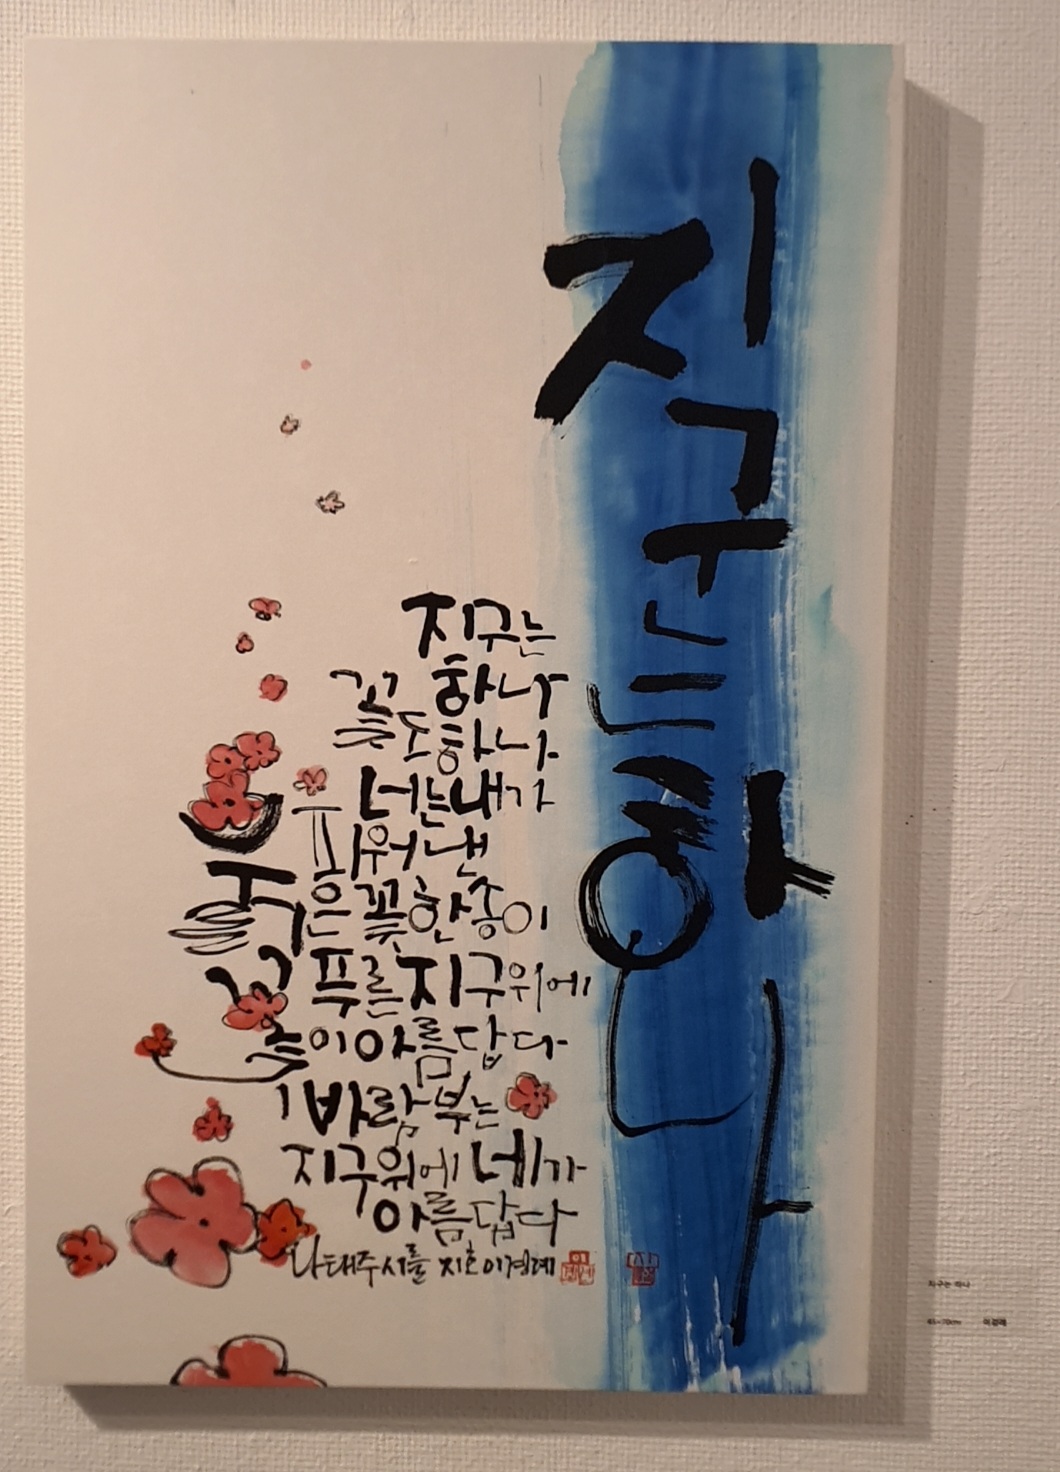 지구는하나
지구는
하나
꽃도하나
너는내가
피워낸
붉은꽃한송이
푸른지구위에
꽃이아름답다
바람부는
지구위에네가
아름답다
나태주 시를 지호 이경례
지구는 하나
이경례